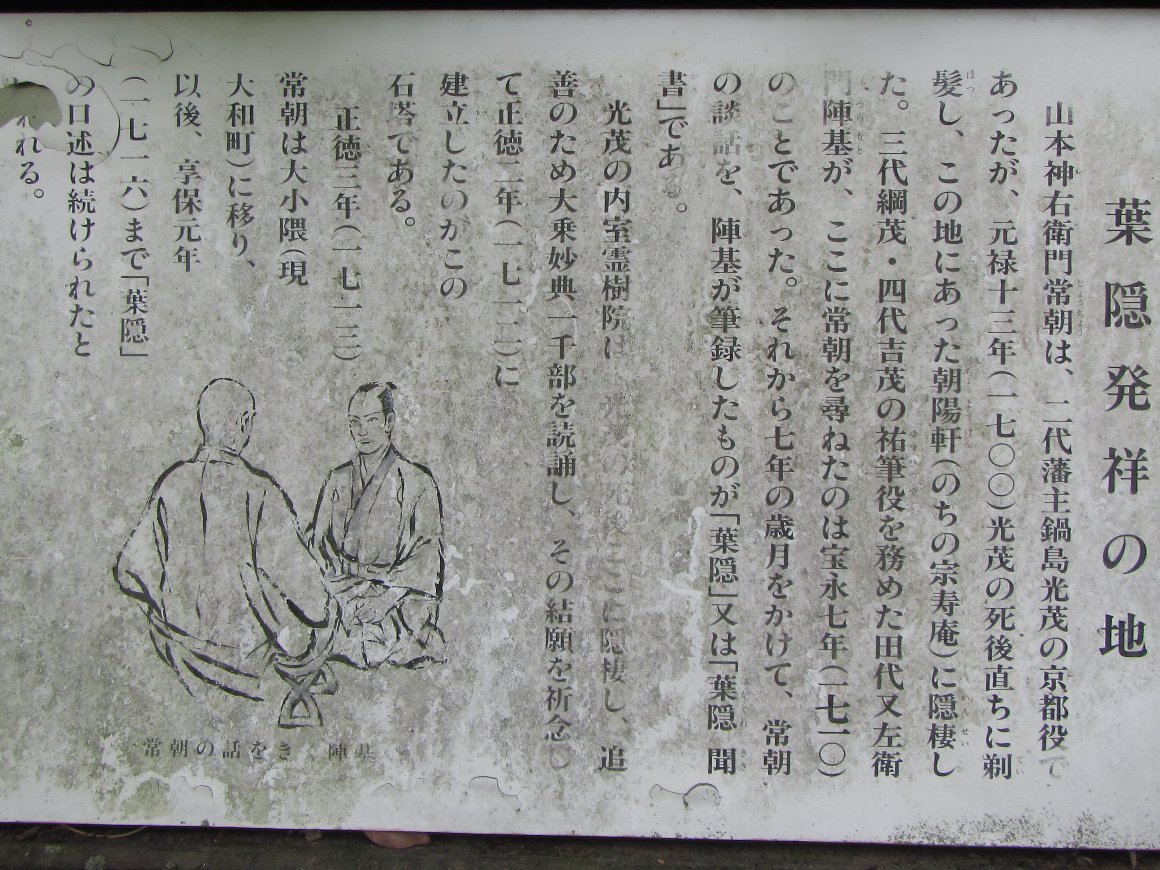 葉隠発祥の地
山本神右衛門常朝は、二代藩主鍋島光茂の京都役で
あったが、元禄十三年(一七〇〇)光茂の死後直ちに剃
髪し、この地にあった朝陽軒(のちの宗寿庵)に隠棲し
た。三代綱茂・四代吉茂の祐筆役を務めた田代又左衛
門陣基が、ここに常朝を尋ねたのは宝永七年(一七一〇)
のことであった。それから七年の歳月をかけて、常朝
の談話を、陣基が筆録したものが「葉隠」又は「葉隠聞
書」である。
光茂の内室霊樹院は 光 の死後ここに隠棲し、追
善のため大乗妙典一千部を読誦し、その結願を祈念し
て正徳二年(一七一二)に
建立したのがこの
石塔である。
正徳三年(一七一三)
常朝は大小隈(現
大和町)に移り、
以後、享保元年
(一七一六)まで「葉隠」
の口述は続けられたと
れる。
常朝の話をきく陣基